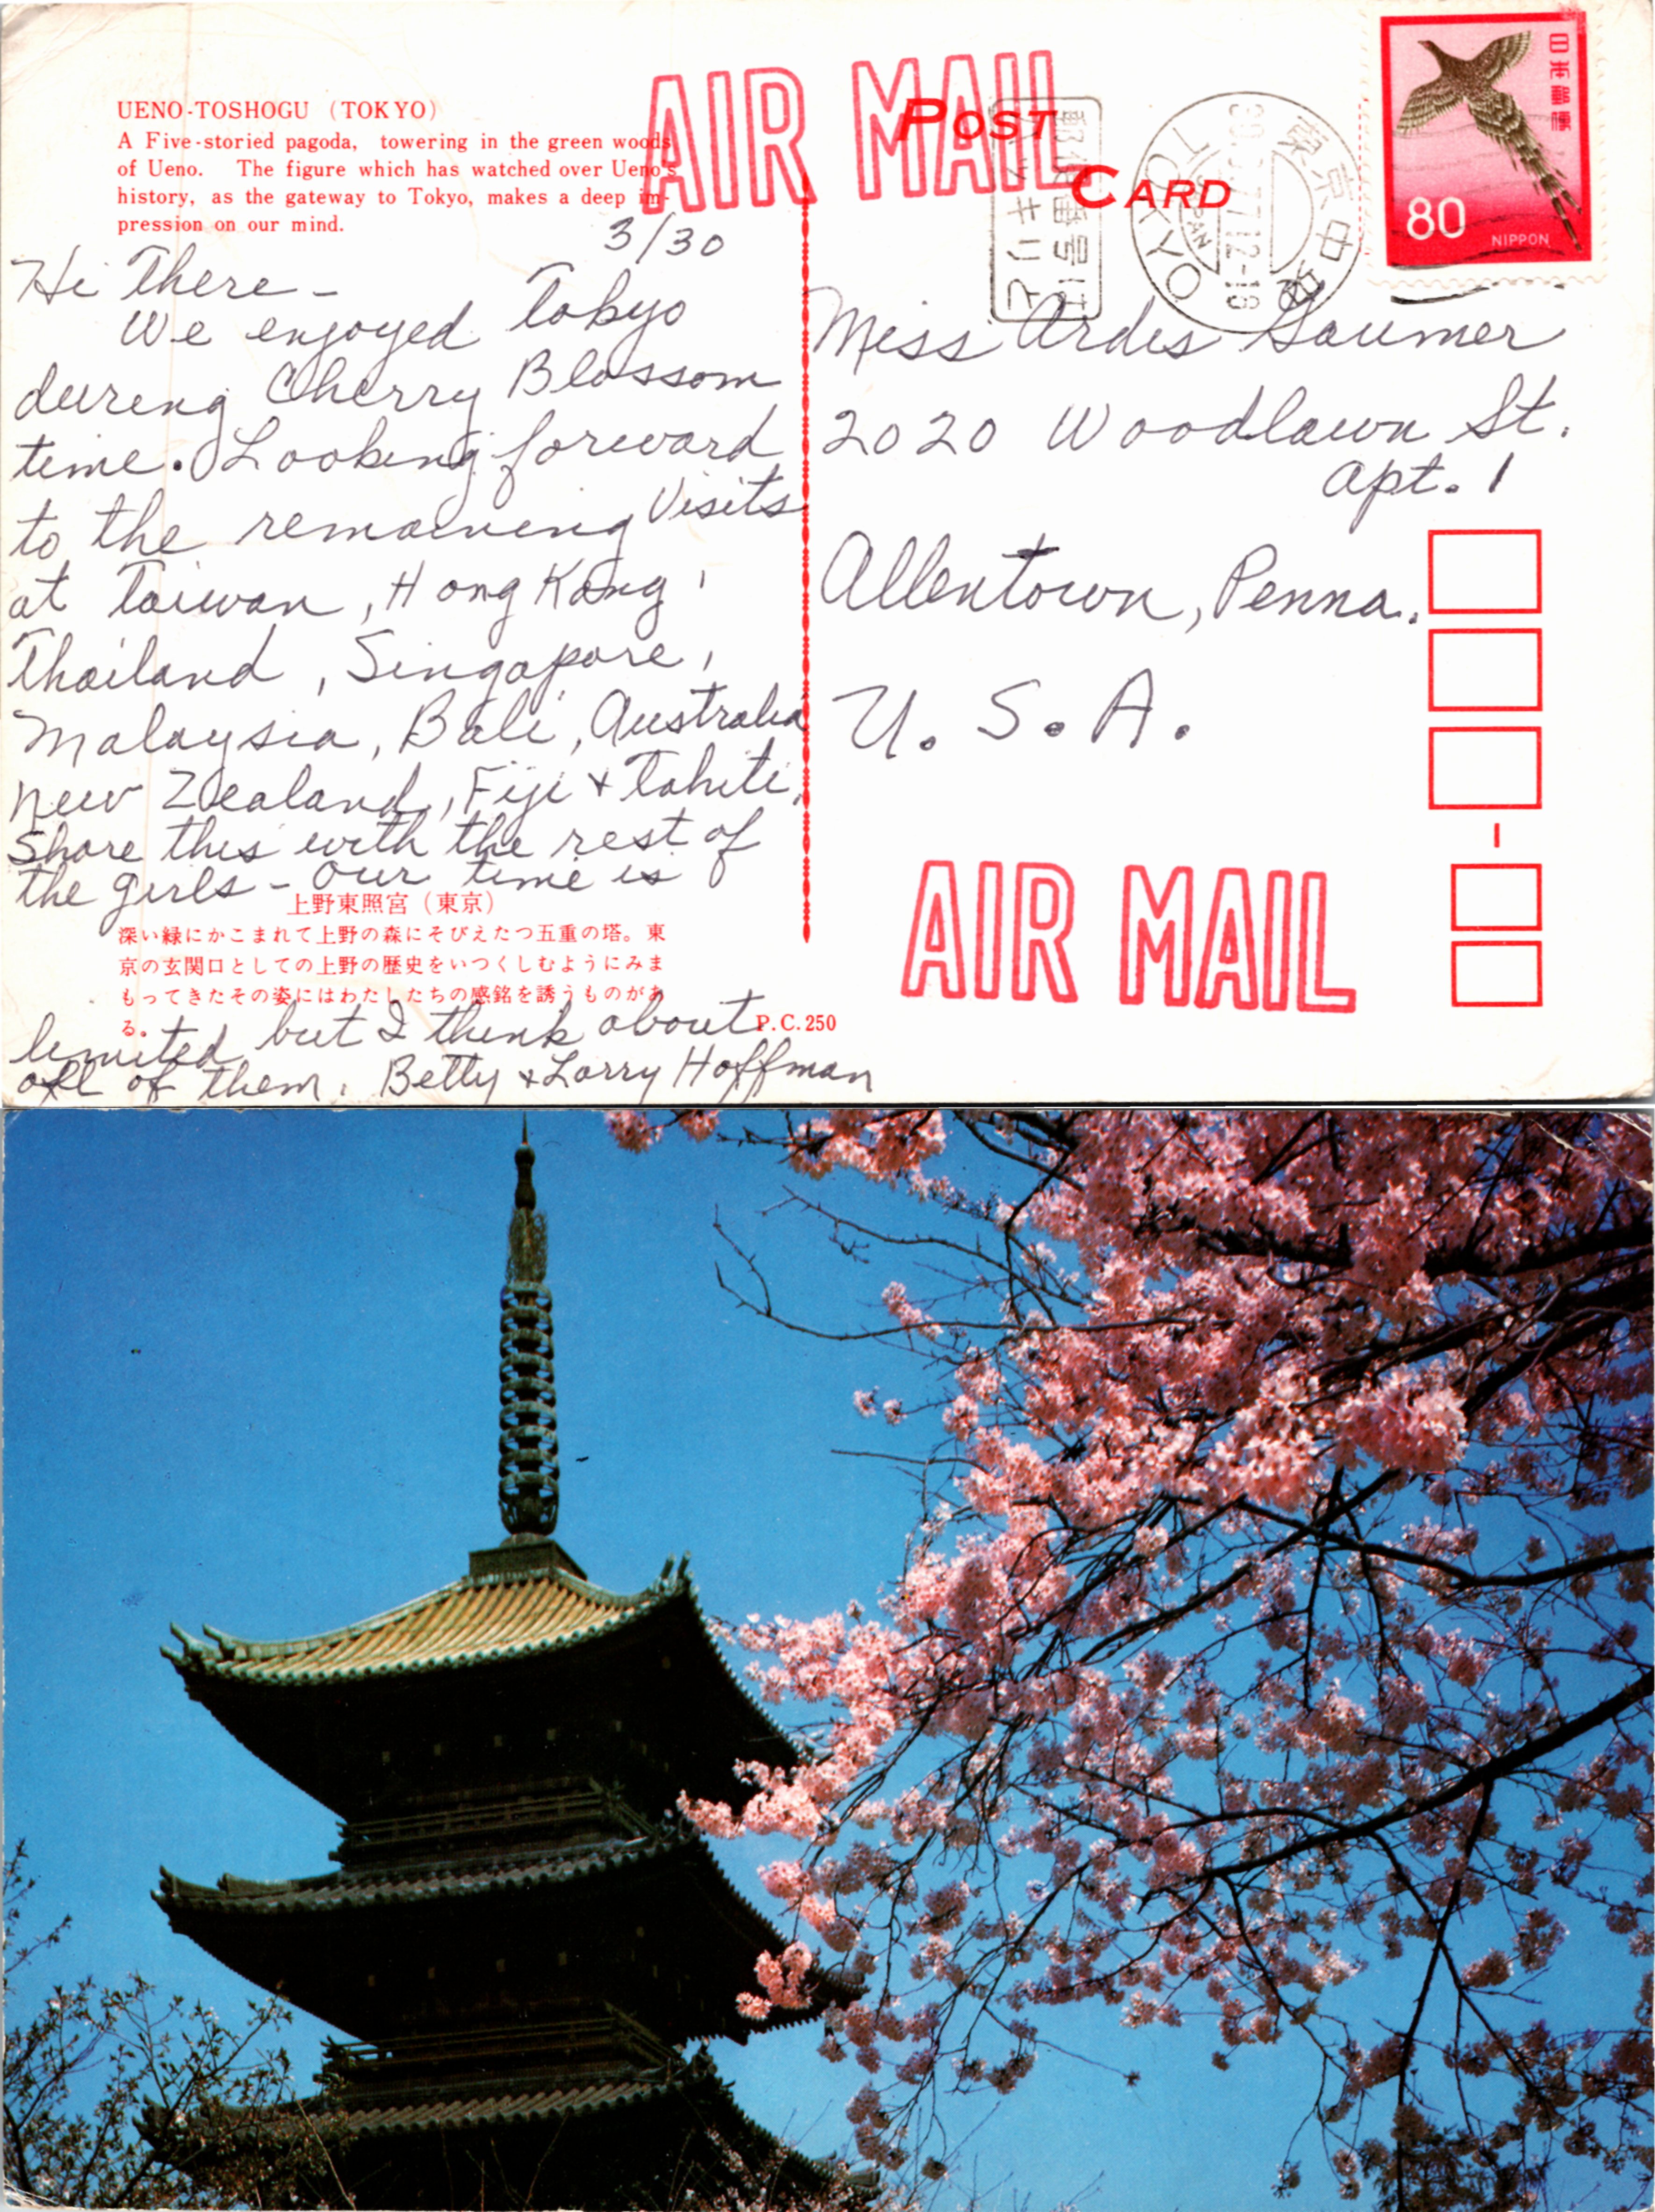 UENO-TOSHOGU (TOKYO)
A Five-storied pagoda, towering in the green woods
of Ueno. The figure which has watched over Ueno's
history, as the gateway to Tokyo, makes a deep im-
pression on our mind.
3/30
Hi There -
We enjoyed Tokyo
during Cherry Blossom
time. Looking forward
to the remaining Visits
at Taiwan, Hong Kong,
Thailand, Singapore,
Malaysia, Bali, Australia
New Zealand, Fiji + Tahiti.
Share this with the rest of
the girls - Our time is
上野東照宮(東京)
深い緑にかこまれて上野の森にそびえたつ五重の塔。東
京の玄関口としての上野の歴史をいつくしむようにみま
もってきたその姿にはわたしたちの感銘を誘うものがあ
る。
limited but I think about
all of them. Betty + Larry Hoffman
P.C.250
AIR MAIL
POST
CARD
郵便番号は
ハッキリと
東京中央
TOKYO
JAPAN
日本郵便
80
NIPPON
Miss Ardis Gaumer
2020 Woodlawn St.
Apt. 1
Allentown, Penna.
U. S. A.
AIR MAIL